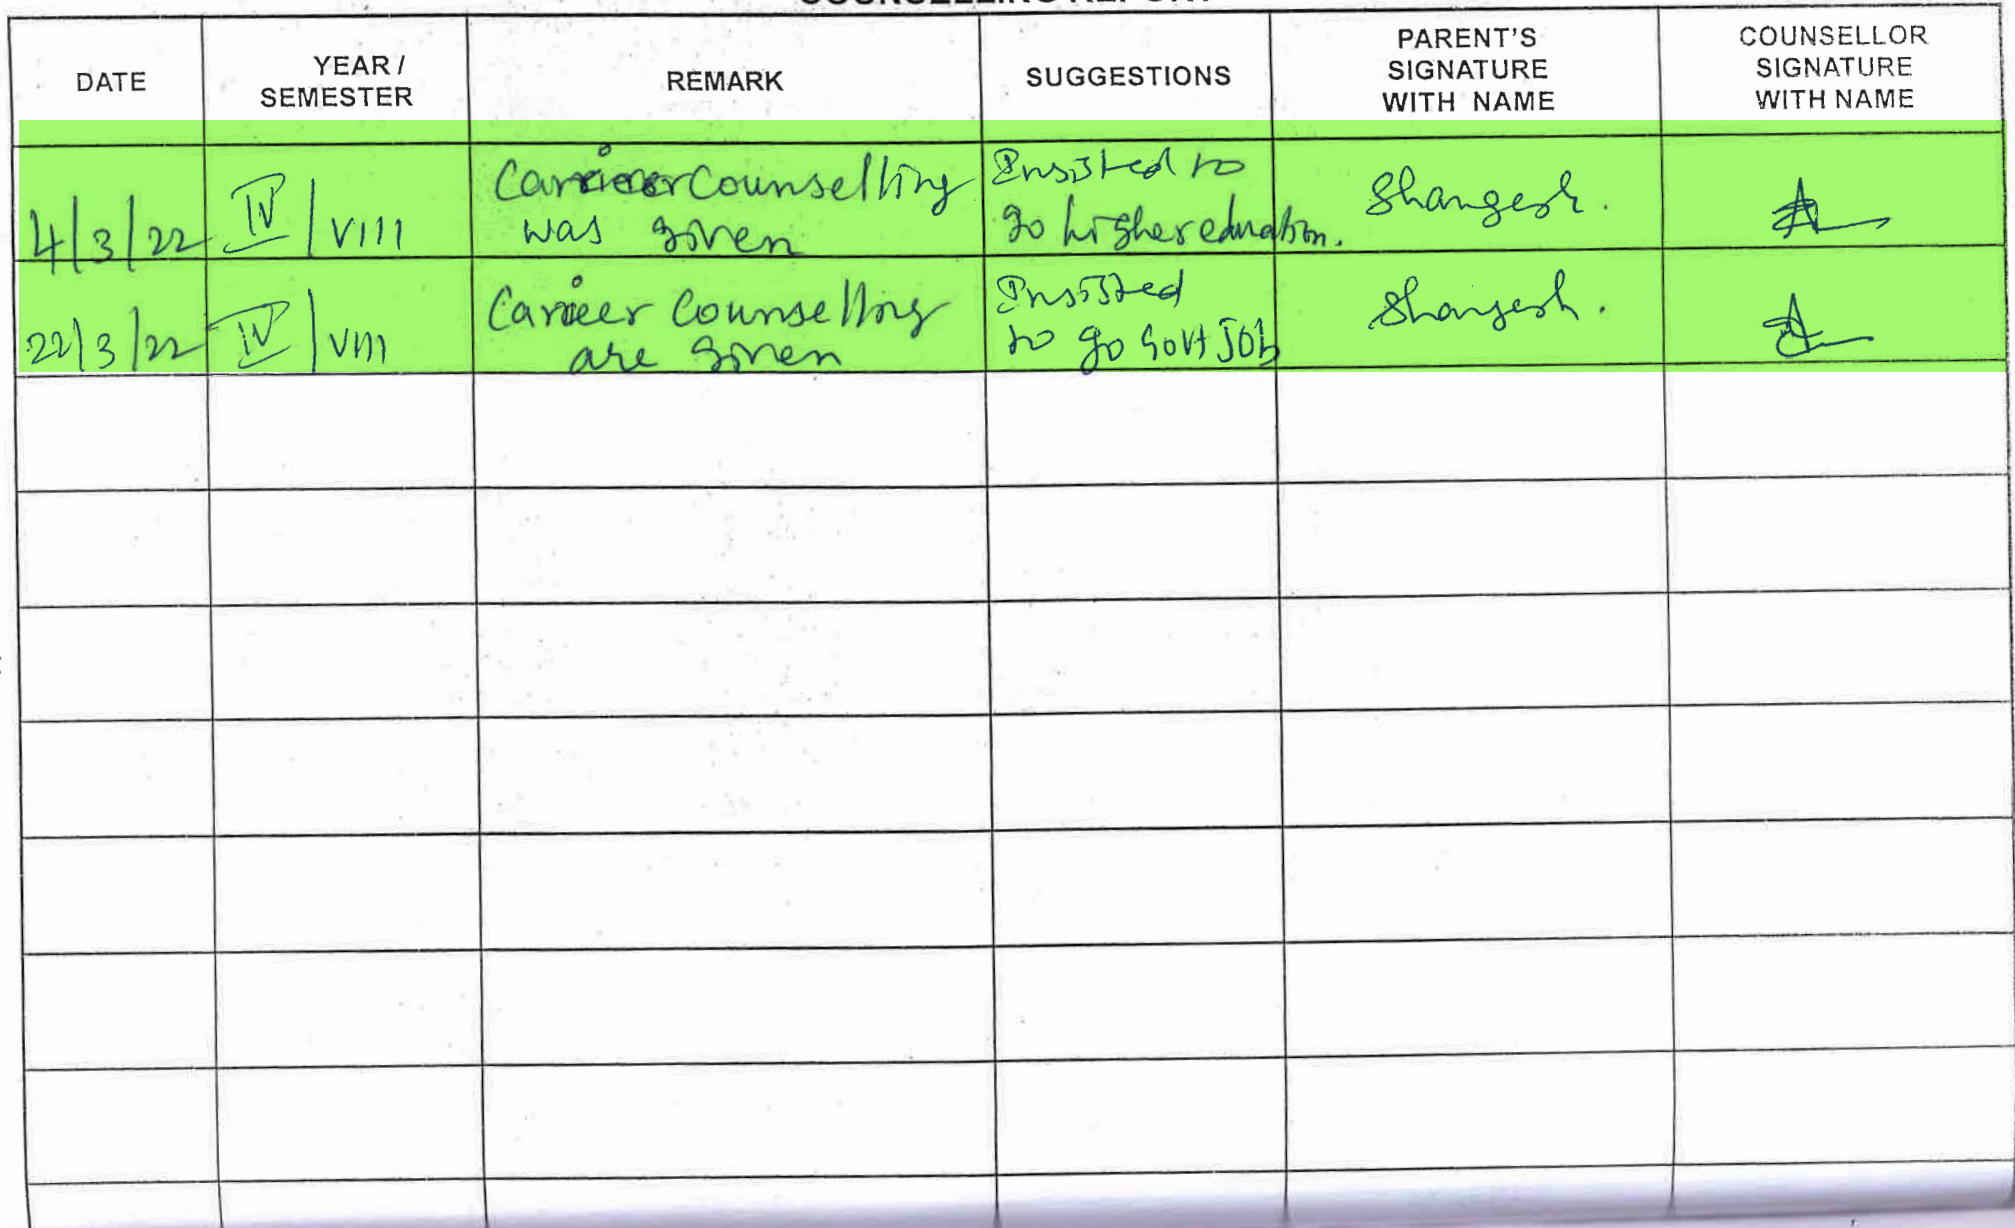 COUNSELLING REPORT
DATE
YEAR /
SEMESTER
REMARK
SUGGESTIONS
PARENT'S
SIGNATURE
WITH NAME
COUNSELLOR
SIGNATURE
WITH NAME
4/3/22
IV / VIII
Carrieer Counselling
was given
Insisted to
go higher eduation.
Shangesh.
22/3/22
IV / VIII
Carieer Counselling
are given
Insisted
to go Govt Job
Shangesh.